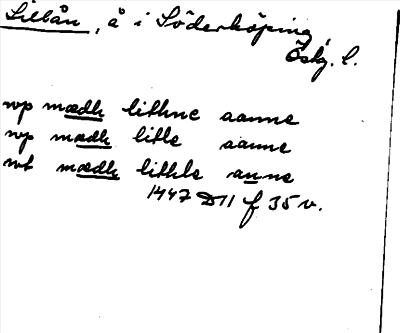 Lillån, å i Söderköping,
Östg. l.
wp mædh lithne aanne
wp mædh litle aanne
wt mædh lithle anne
1447 D11 f 35 v.